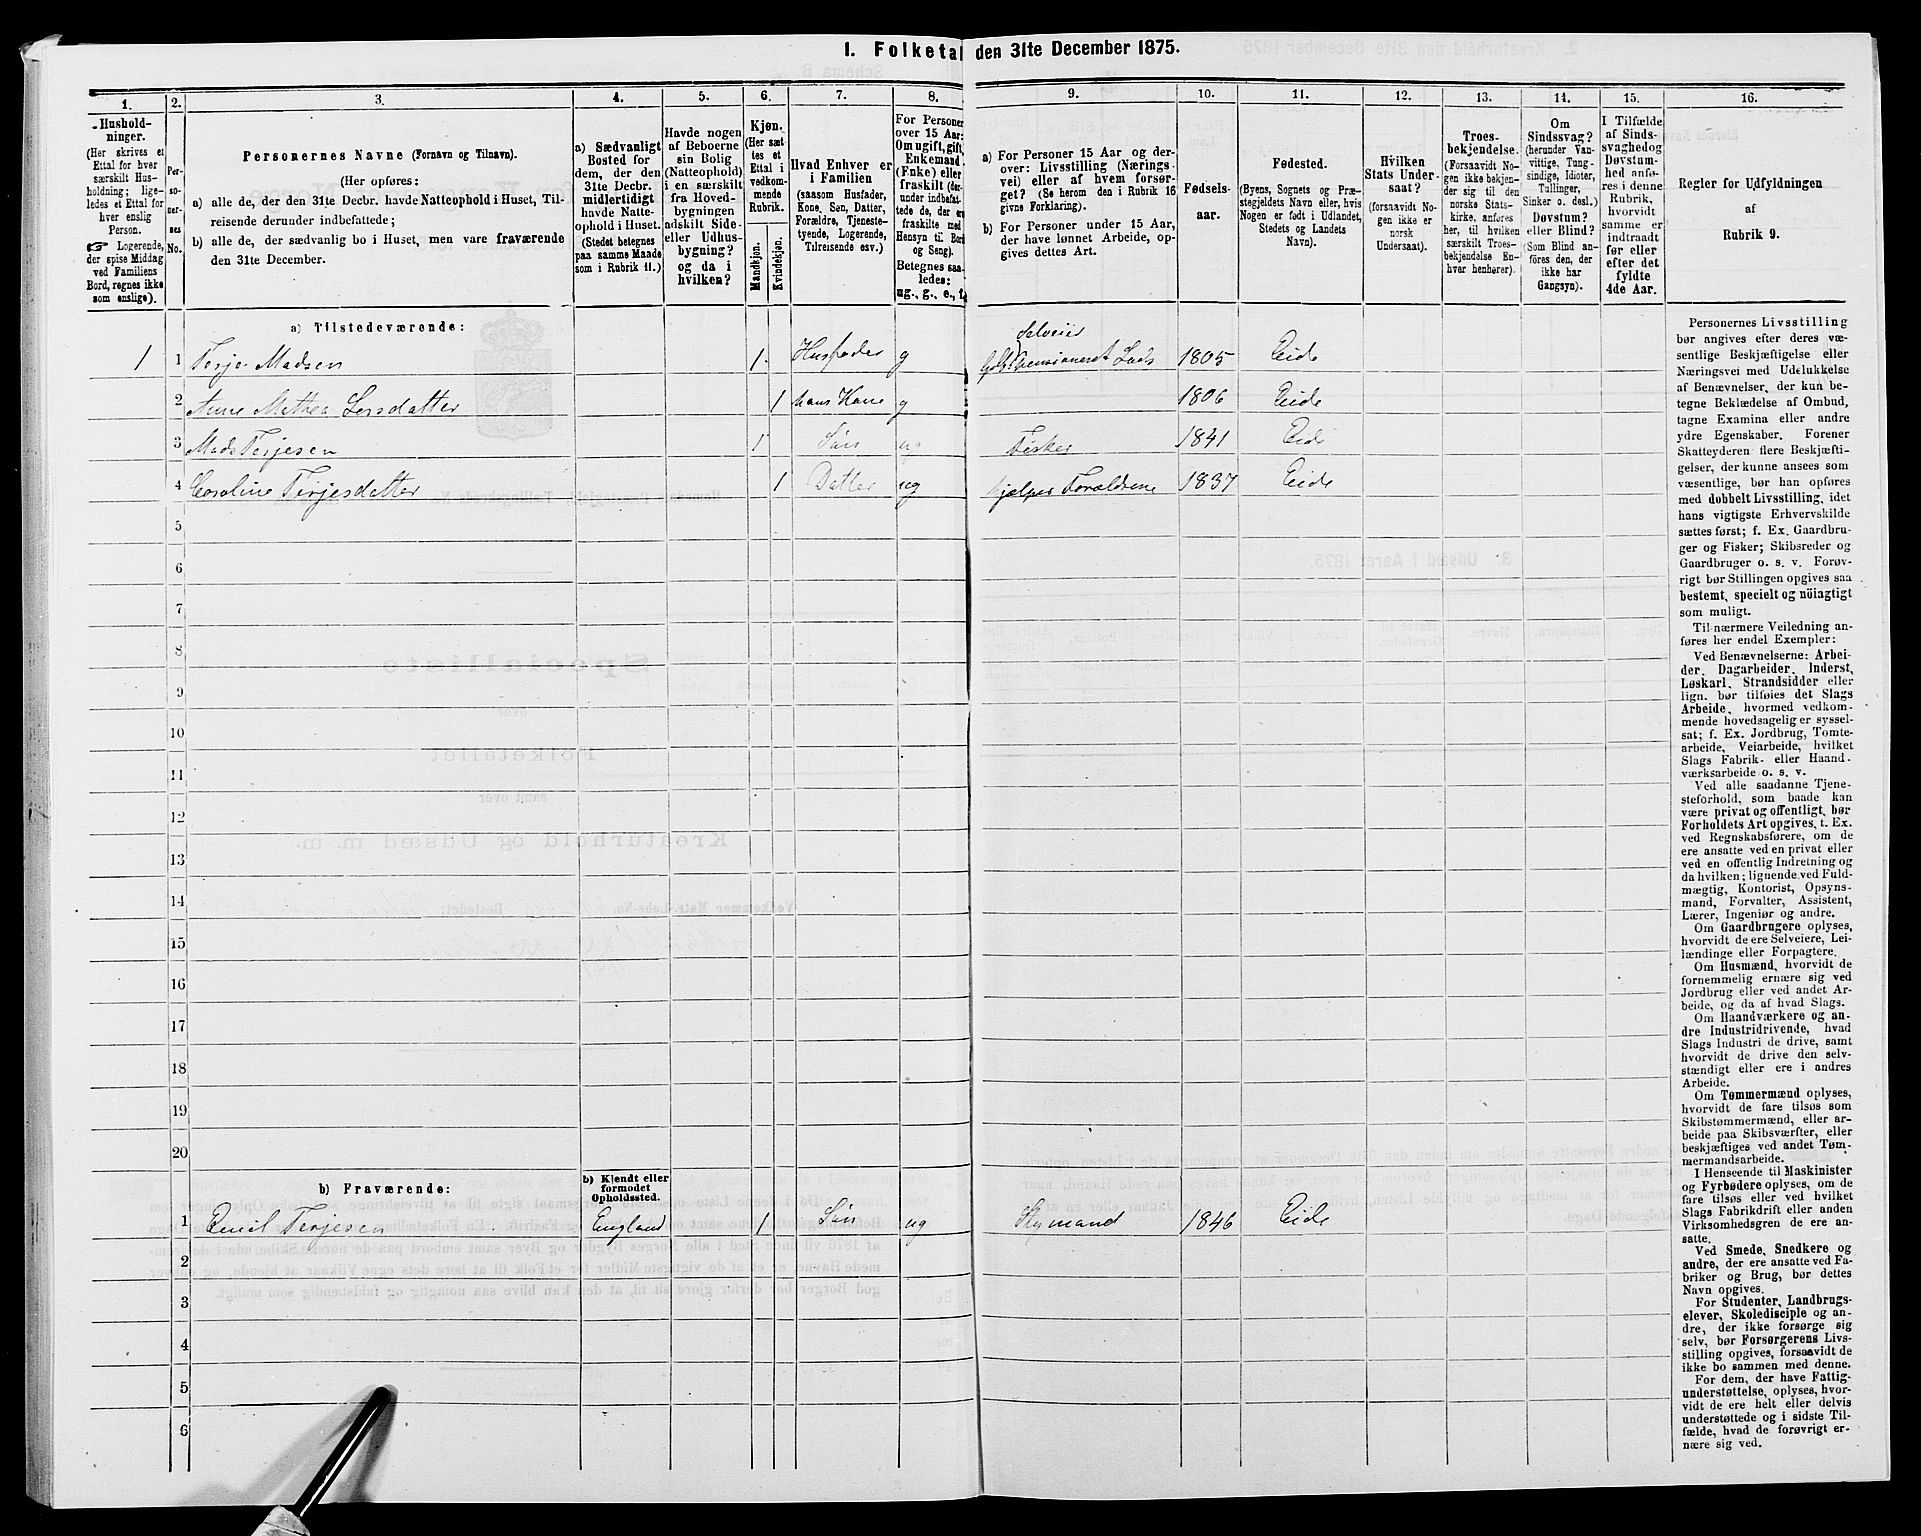 1. Folketal den 31te December 1875.
1. 2. 3. 4. 5. 6. 7. 8. 9. 10. 11. 12. 13. 14. 15. 16.
Hushold-
ninger.
(Her skrives et
Ettal for hver
særskilt Hus-
holdning; lige-
ledes et Ettal for
hver enslig
Person.
☞ Logerende,
der spise Middag
ved Familiens
Bord, regnes ikke
som enslige).
Per-
so-
ner-
nes
No.
Personernes Navne (Fornavn og Tilnavn).
(Her opføres:
a) alle de, der den 31te Decbr. havde Natteophold i Huset, Til-
reisende derunder indbefattede;
b) alle de, der sædvanlig bo i Huset, men vare fraværende
den 31te December.
a) Sædvanligt
Bosted for
dem, der den
31te Decbr.
midlertidigt
havde Natte-
ophold i Huset.
(Stedet betegnes
paa samme Maade
som i Rubrik 11.)
Havde nogen
af Beboerne
sin Bolig
(Natteophold)
i en særskilt
fra Hoved-
bygningen
adskilt Side-
eller Udhus-
bygning?
og da i
hvilken?
Kjøn.
(Her sæt-
tes et
Ettal i
vedkom-
mende
Rubrik.
Mandkjøn.
Kvindekjøn.
Hvad Enhver er
i Familien
(saasom Husfader,
Kone, Søn, Datter,
Forældre, Tjeneste-
tyende, Logerende,
Tilreisende osv.)
For Personer
over 15 Aar:
Om ugift, gift,
Enkemand
(Enke) eller
fraskilt (der-
under indbefat-
tede de, der ere
fraskilte med
Hensyn til Bord
og Seng).
Betegnes saa-
ledes:
ug., g., e., f.
a) For Personer 15 Aar og der-
over: Livsstilling (Nærings-
vei) eller af hvem forsør-
get? (Se herom den i Rubrik 16
givne Forklaring).
b) For Personer under 15 Aar,
der have lønnet Arbeide, op-
gives dettes Art.
Fødsels-
aar.
Fødested.
(Byens, Sognets og Præ-
stegjeldets Navn eller, hvis
Nogen er født i Udlandet,
Stedets og Landets
Navn).
Hvilken
Stats Under-
saat?
(forsaavidt No-
gen ikke er
norsk
Undersaat).
Troes-
bekjendelse.
(Forsaavidt No-
gen ikke bekjen-
der sig til den
norske Stats-
kirke, anføres
her, til hvilken
særskilt Troes-
bekjendelse En-
hver henhører).
Om
Sindssvag?
(herunder Van-
vittige, Tung-
sindige, Idioter,
Tullinger,
Sinker o. desl.)
Døvstum?
eller Blind?
(Som Blind an-
føres den, der
ikke har
Gangsyn).
I Tilfælde
af Sinds-
svaghedog
Døvstum-
hed anfø-
res i denne
Rubrik,
hvorvidt
samme er
indtraadt
før eller
efter det
fyldte
4de Aar.
Regler for Udfyldningen
af
Rubrik 9.
a) Tilstedeværende:
Selveier
1 1 Terje Madsen 1 Husfader g Pensioneret Lods 1805 Eide
2 Anne Mathea Larsdatter 1 hans Kone g 1806 Eide
3 Mads Terjesen 1 Søn ug Fisker 1841 Eide
4 Caroline Terjesdatter 1 Datter ug hjælper Forældrene 1837 Eide
5
6
7
8
9
10
11
12
13
14
15
16
17
18
19
20
b) Fraværende:
b) Kjendt eller
formodet
Opholdssted.
1 Emil Terjesen England 1 Søn ug Styrmand 1846 Eide
2
3
4
5
6
Personernes Livsstilling
bør angives efter deres væ-
sentlige Beskjæftigelse eller
Næringsvei med Udelukkelse
af Benævnelser, der kun be-
tegne Beklædelse af Ombud,
tagne Examina eller andre
ydre Egenskaber. Forener
Skatteyderen flere Beskjæfti-
gelser, der kunne ansees som
væsentlige, bør han opføres
med dobbelt Livsstilling, idet
hans vigtigste Erhvervskilde
sættes først; f. Ex. Gaardbru-
ger og Fisker; Skibsreder og
Gaardbruger o. s. v. Forøv-
rigt bør Stillingen opgives saa
bestemt, specielt og nöiagtigt
som muligt.
Til nærmere Veiledning an-
føres her endel Exempler:
Ved Benævnelserne: Arbei-
der, Dagarbeider, Inderst,
Løskarl, Strandsidder eller
lign. bør tilføies det Slags
Arbeide, hvormed vedkom-
mende hovedsagelig er syssel-
sat; f. Ex. Jordbrug, Tomte-
arbeide, Veiarbeide, hvilket
Slags Fabrik- eller Haand-
værksarbeide o. s. v.
Ved alle saadanne Tjene-
steforhold, som baade kan
være privat og offentligt, bør
Forholdets Art opgives, t. Ex.
ved Regnskabsførere, om de
ere ansatte ved en privat eller
ved en offentlig Indretning og
da hvilken; lignende ved Fuld-
mægtig, Kontorist, Opsyns-
mand, Forvalter, Assistent,
Lærer, Ingeniør og andre.
Om Gaardbrugere oplyses,
hvorvidt de ere Selveiere, Lei-
lændinge eller Forpagtere.
Om Husmænd, hvorvidt de
fornemmelig ernære sig ved
Jordbrug eller ved andet Ar-
beide, og da af hvad Slags.
Om Haandværkere og an-
dre Industridrivende, hvad
Slags Industri de drive, samt
hvorvidt de drive den selv-
stændigt eller ere i andres
Arbeide.
Om Tømmermænd oplyses,
hvorvidt de fare tilsøs som
Skibstømmermænd, eller ar-
beide paa Skibsværfter, eller
beskjæftiges ved andet Tøm-
mermandsarbeide.
I Henseende til Maskinister
og Fyrbødere oplyses, om de
fare tilsøs eller ved hvilket
Slags Fabrikdrift eller anden
Virksomhedsgren de ere an-
satte.
Ved Smede, Snedkere og
andre, der ere ansatte ved Fa-
briker og Brug, bør dettes
Navn opgives.
For Studenter, Landbrugs-
elever, Skoledisciple og an-
dre, der ikke forsørge sig
selv, bør Forsørgerens Livs-
stilling opgives, forsaavidt de
ikke bo sammen med denne.
For dem, der have Fattig-
understøttelse, oplyses, hvor-
vidt de ere helt eller delvis
understøttede og i sidste Til-
fælde, hvad de forøvrigt er-
nære sig ved.